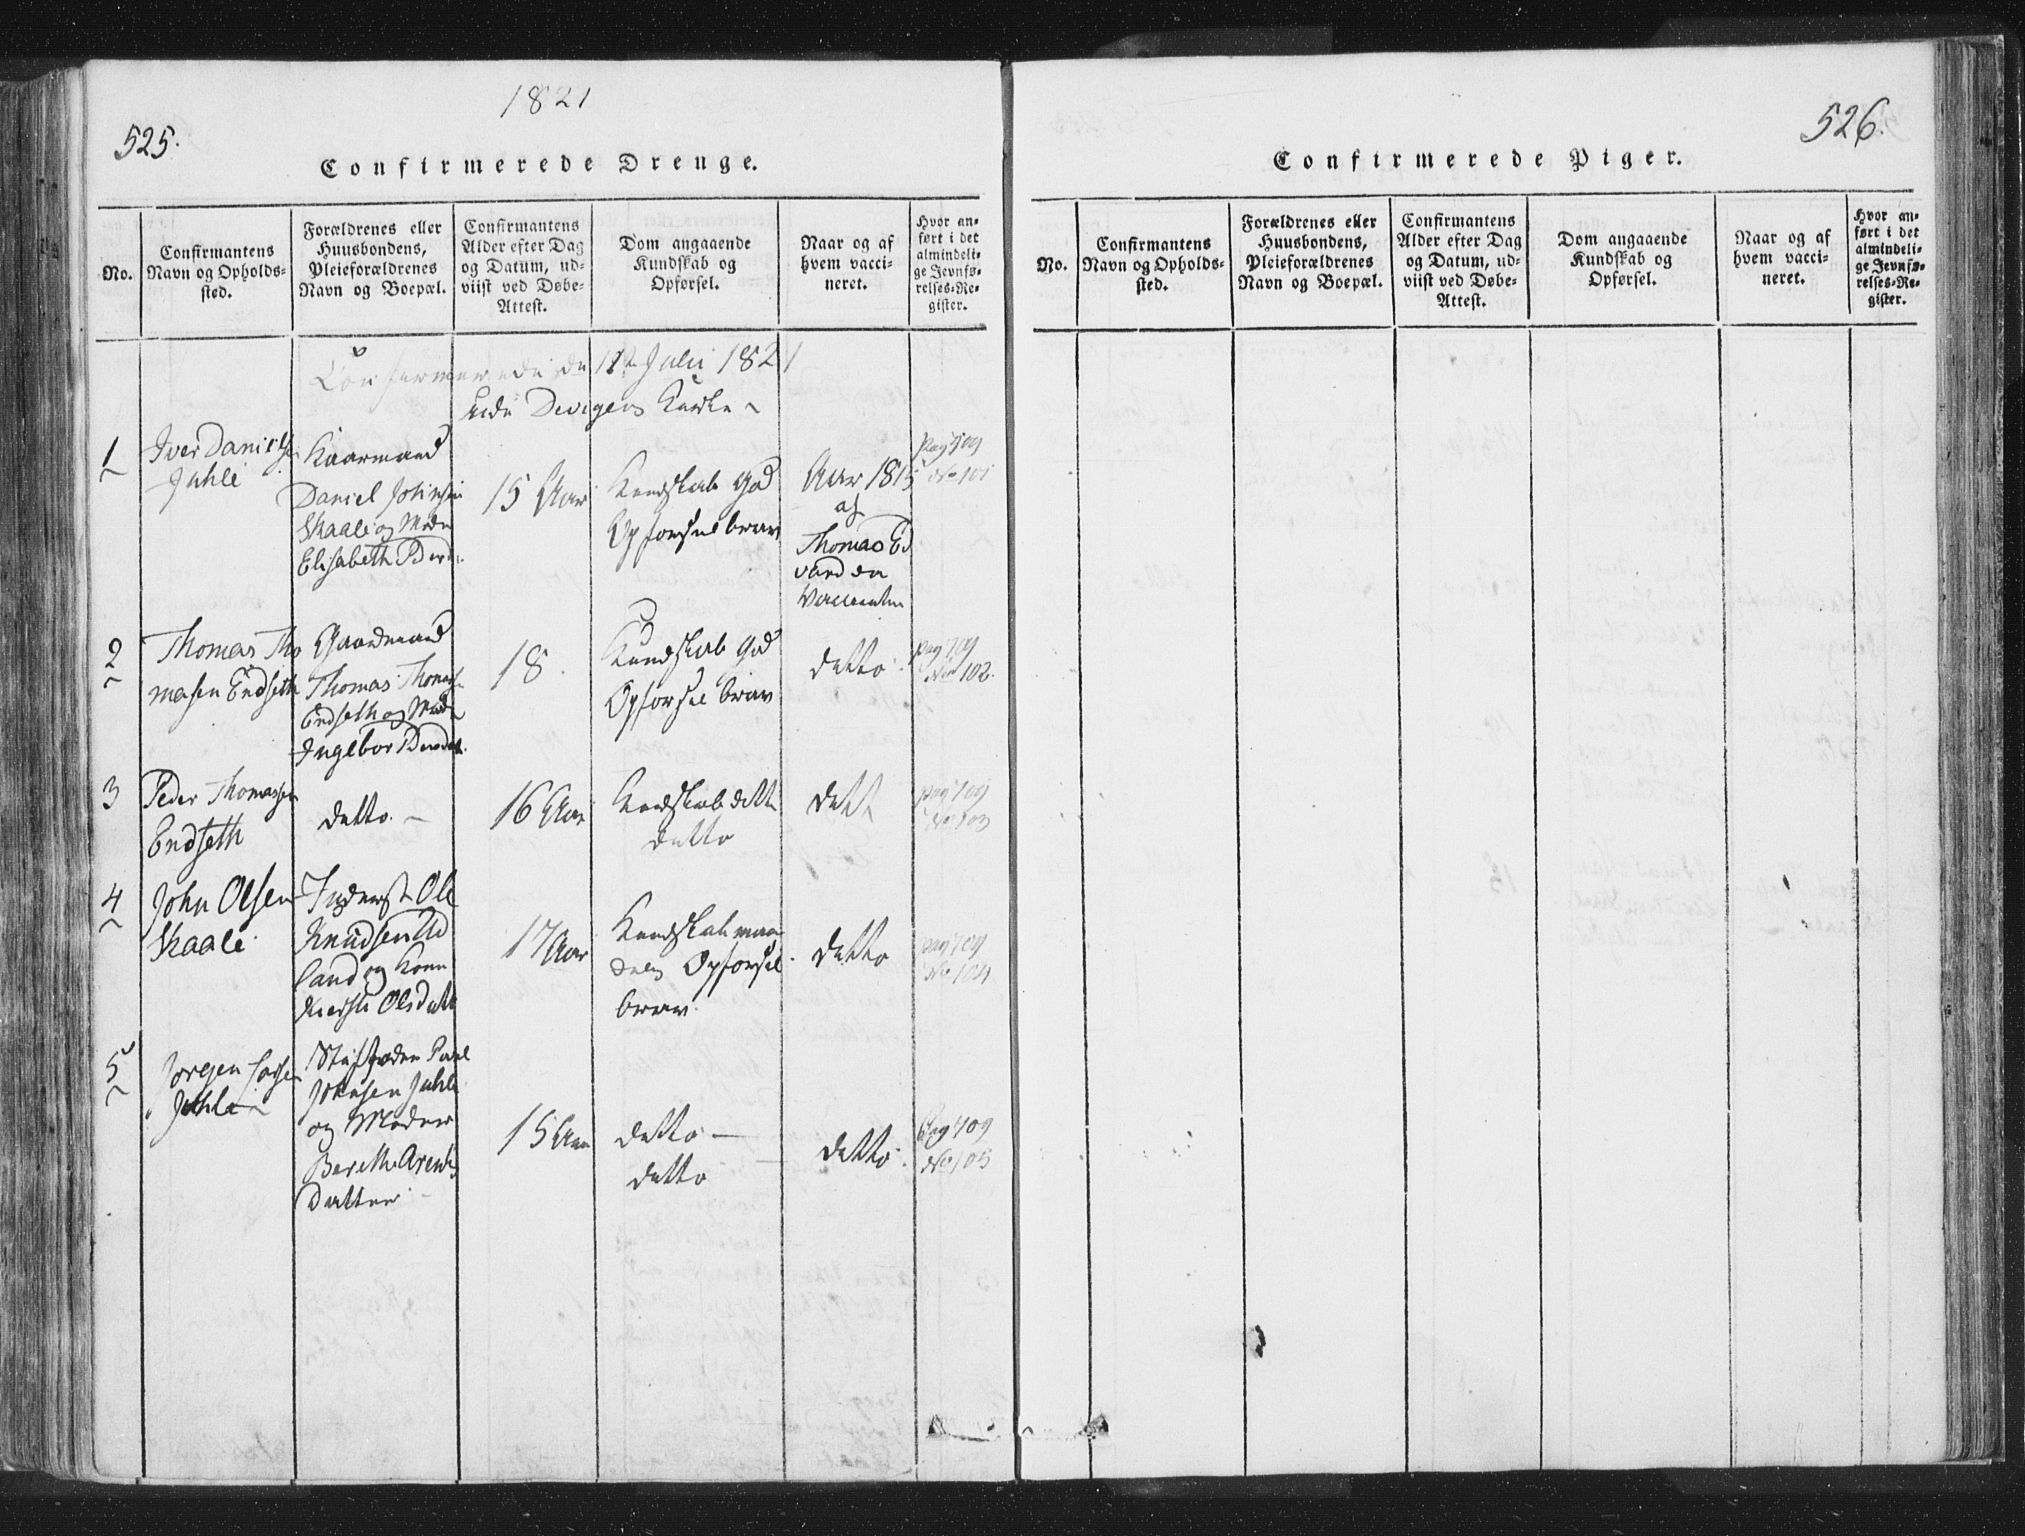 1821
525.
Confirmerede Drenge.
No.
Confirmantens
Navn og Opholds-
sted.
Forældrenes eller
Huusbondens,
Pleieforældrenes
Navn og Boepæl.
Confirmantens
Alder efter Dag
og Datum, ud-
viist ved Døbe-
Attest.
Dom angaaende
Kundskab og
Opførsel.
Naar og af
hvem vacci-
neret.
Hvor an-
ført i det
almindeli-
ge Jevnfø-
relses-Re-
gister.
Julii 1821
Kirke
1
Iver Daniels
Juhle
Kaarmand
Daniel Johnsen
Skaale og Mod
Elisabeth Peders
15 Aar
Kundskab god
Opførsel brav
Aar 1815
af
Thomas Ed
vard den
Pag 709
No 101
2
Thomas Tho
masen Endseth
Gaardmand
Thomas Thomas
Endseth og Mod
Ingebor Pedersd
18.
Kundskab god
Opførsel brav
detto
Pag 709
No 102.
3
Peder Thomassen
Endseth
detto.
16 Aar
Kundskab ditto
detto
dett
Pag 709
No 103
4
John Olsen
Skaale
Inderst Ole
Knudsen Ud
land og Kone
Olsdatt
17 Aar
Kundskab maa
delig Opførsel
brav.
detto
Pag 709
No 104
5
Jørgen Larsen
Juhle
Stiffader Paul
Johnsen Juhle
og Moder
Berethe Arents
Datter
15 Aar
detto
detto
detto
Pag 709
No 105
526.
Confirmerede Piger.
No.
Confirmantens
Navn og Opholds-
sted.
Forældrenes eller
Huusbondens,
Pleieforældrenes
Navn og Boepæl.
Confirmantens
Alder efter Dag
og Datum, ud-
viist ved Døbe-
Attest.
Dom angaaende
Kundskab og
Opførsel.
Naar og af
hvem vacci-
neret.
Hvor an-
ført i det
almindeli-
ge Jevnfø-
relses-Re-
gister.